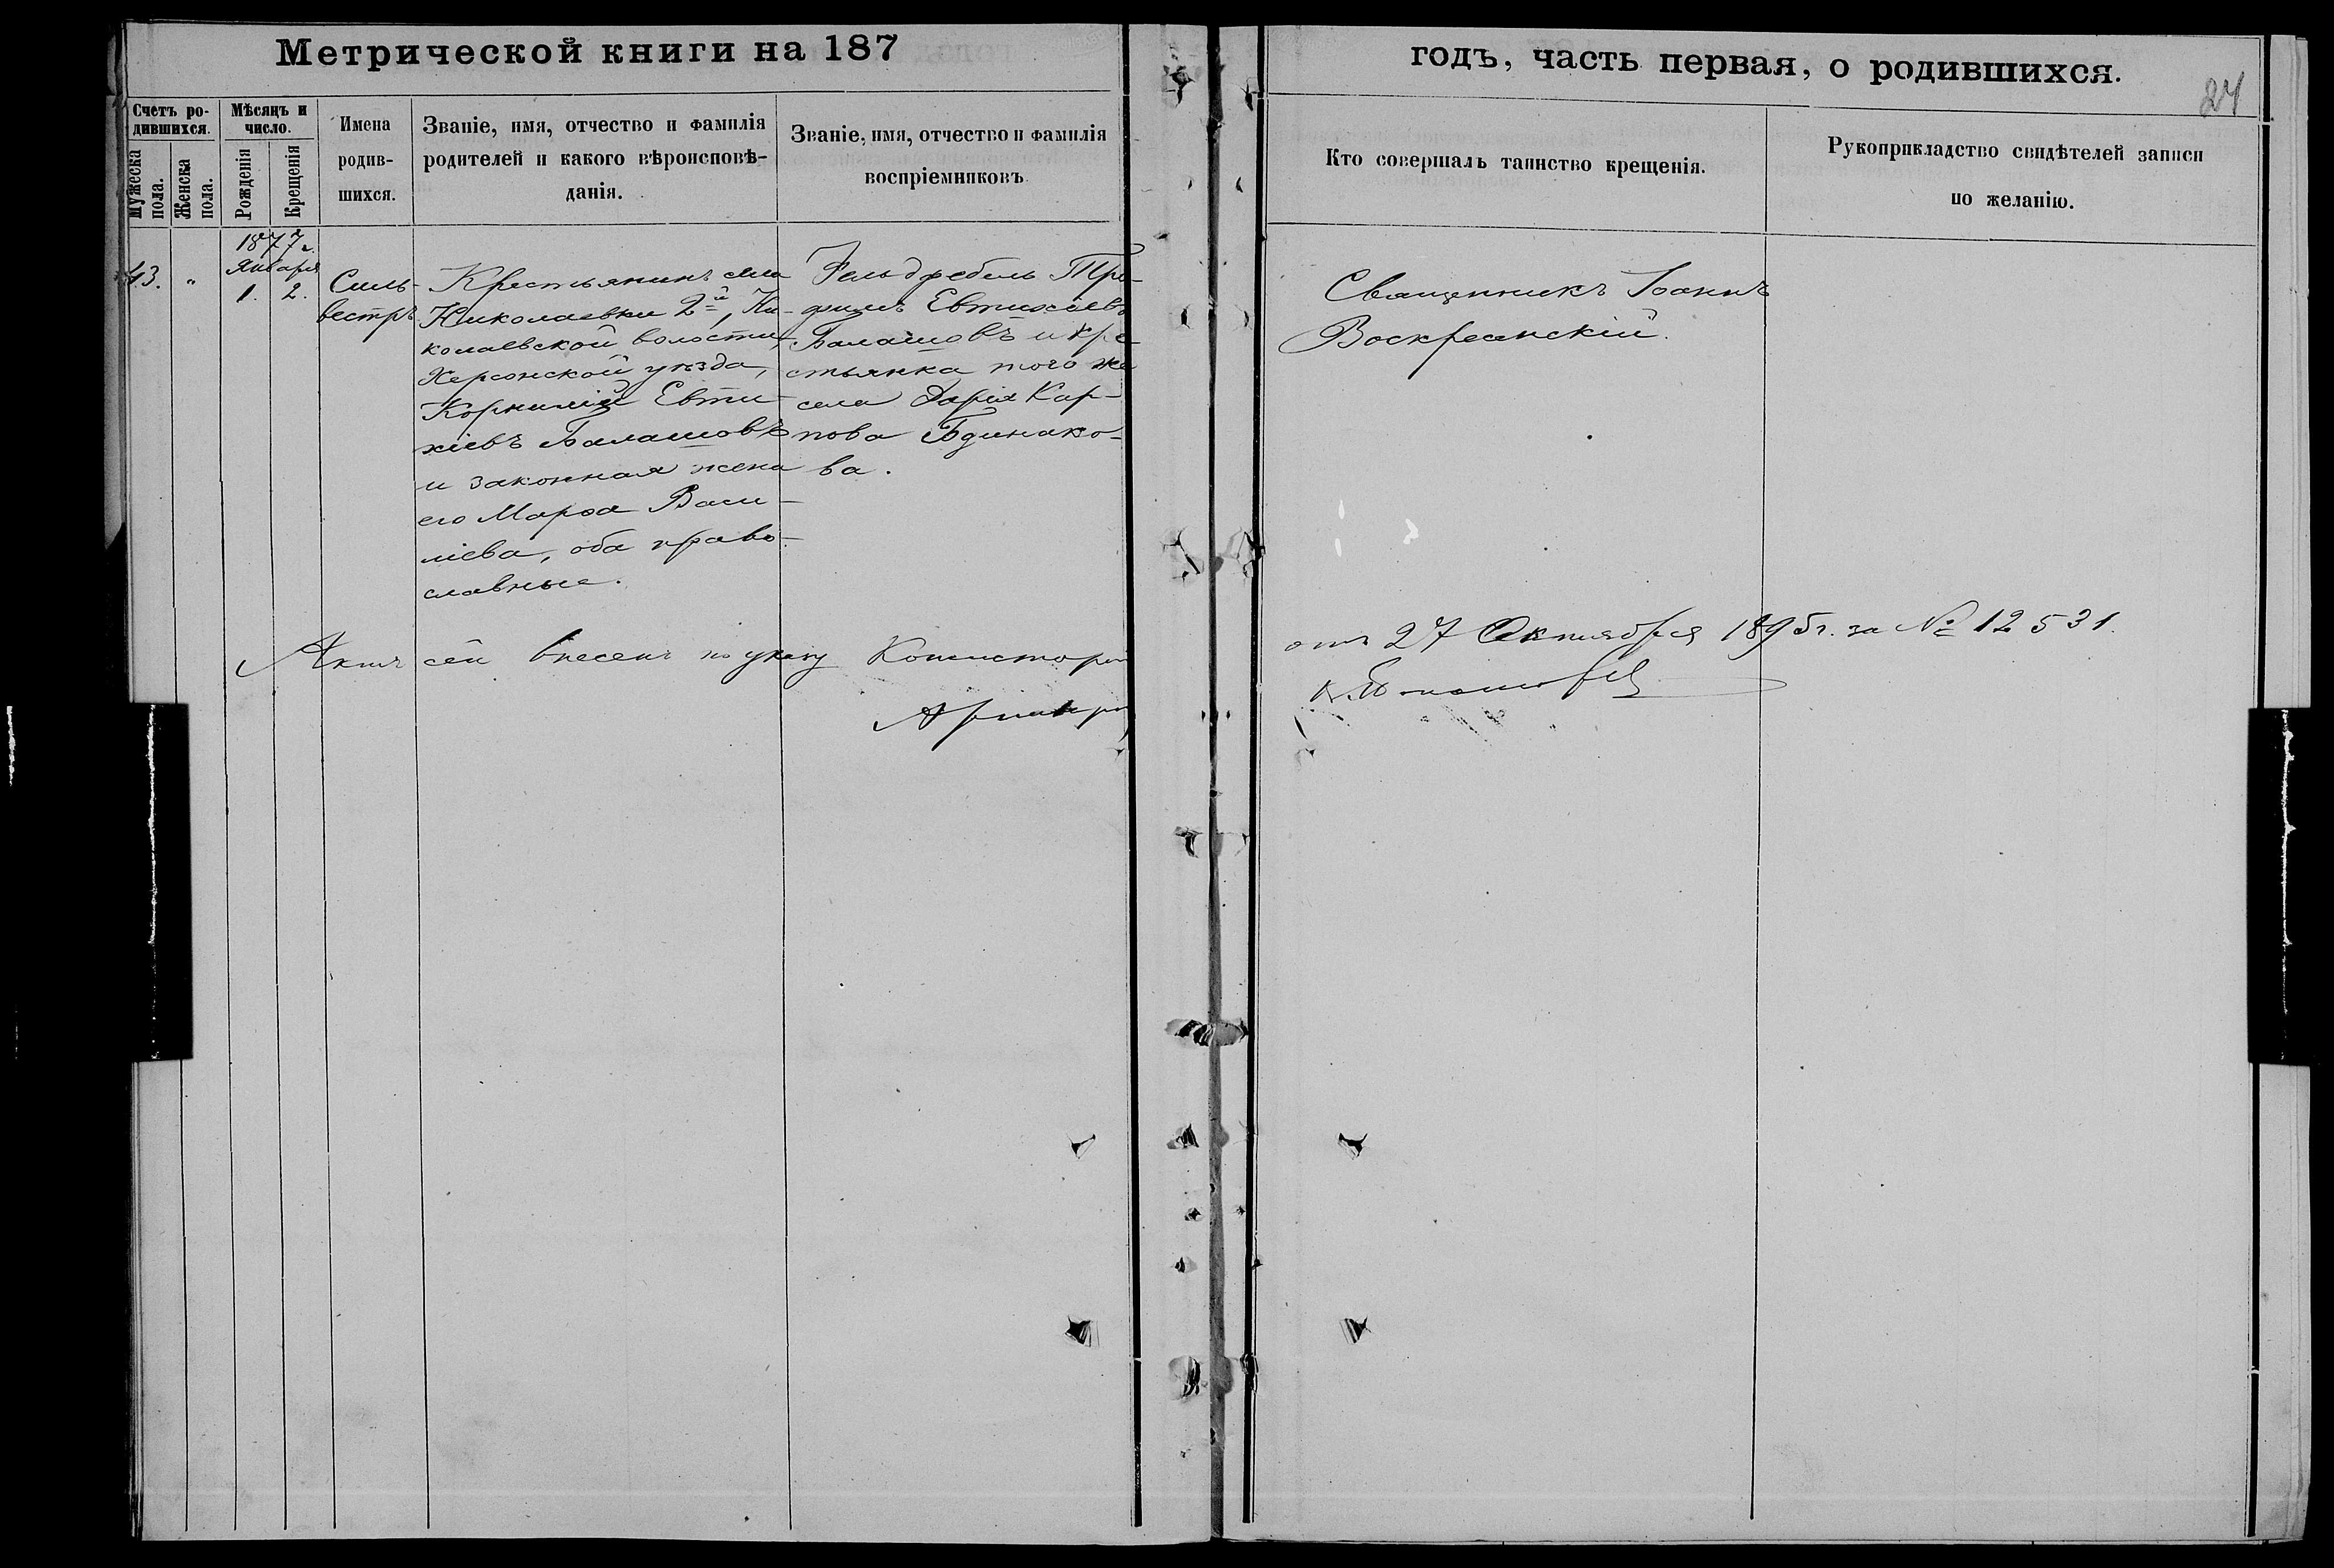 Метрической книги на 187
годъ, часть первая, о родившихся.
24
Счетъ ро-
дившихся.
Мужеска
пола.
Женска
пола.
Мѣсяцъ и
число.
Рожденія
Крещенія
Имена
родив-
шихся.
Званіе, имя, отчество и фамилія
родителей и какого вѣроисповѣ-
данія.
Званіе, имя, отчество и фамилія
воспріемниковъ
Кто совершалъ таинство крещенія.
Рукоприкладство свидѣтелей записи
по желанію.
43.
"
1877 г.
Января
1. 2.
Силь-
вестръ
Крестьянинъ села
Николаевки 2-й, Ни-
колаевской волости,
Херсонской уѣзда,
Корнилій Евти-
хіевъ Балашовъ
и законная жена
его Марѳа Васи-
ліева, оба право-
славные.
Фельдфебель Тро-
фимъ Евтихіевъ
Балашовъ и кре-
стьянка того же
села Дарія Кар-
пова Будинако-
ва.
Священникъ Іоаннъ
Воскресенскій.
Актъ сей внесенъ по указу Консисторіи
отъ 27 Октября 1895 г. за № 12531.